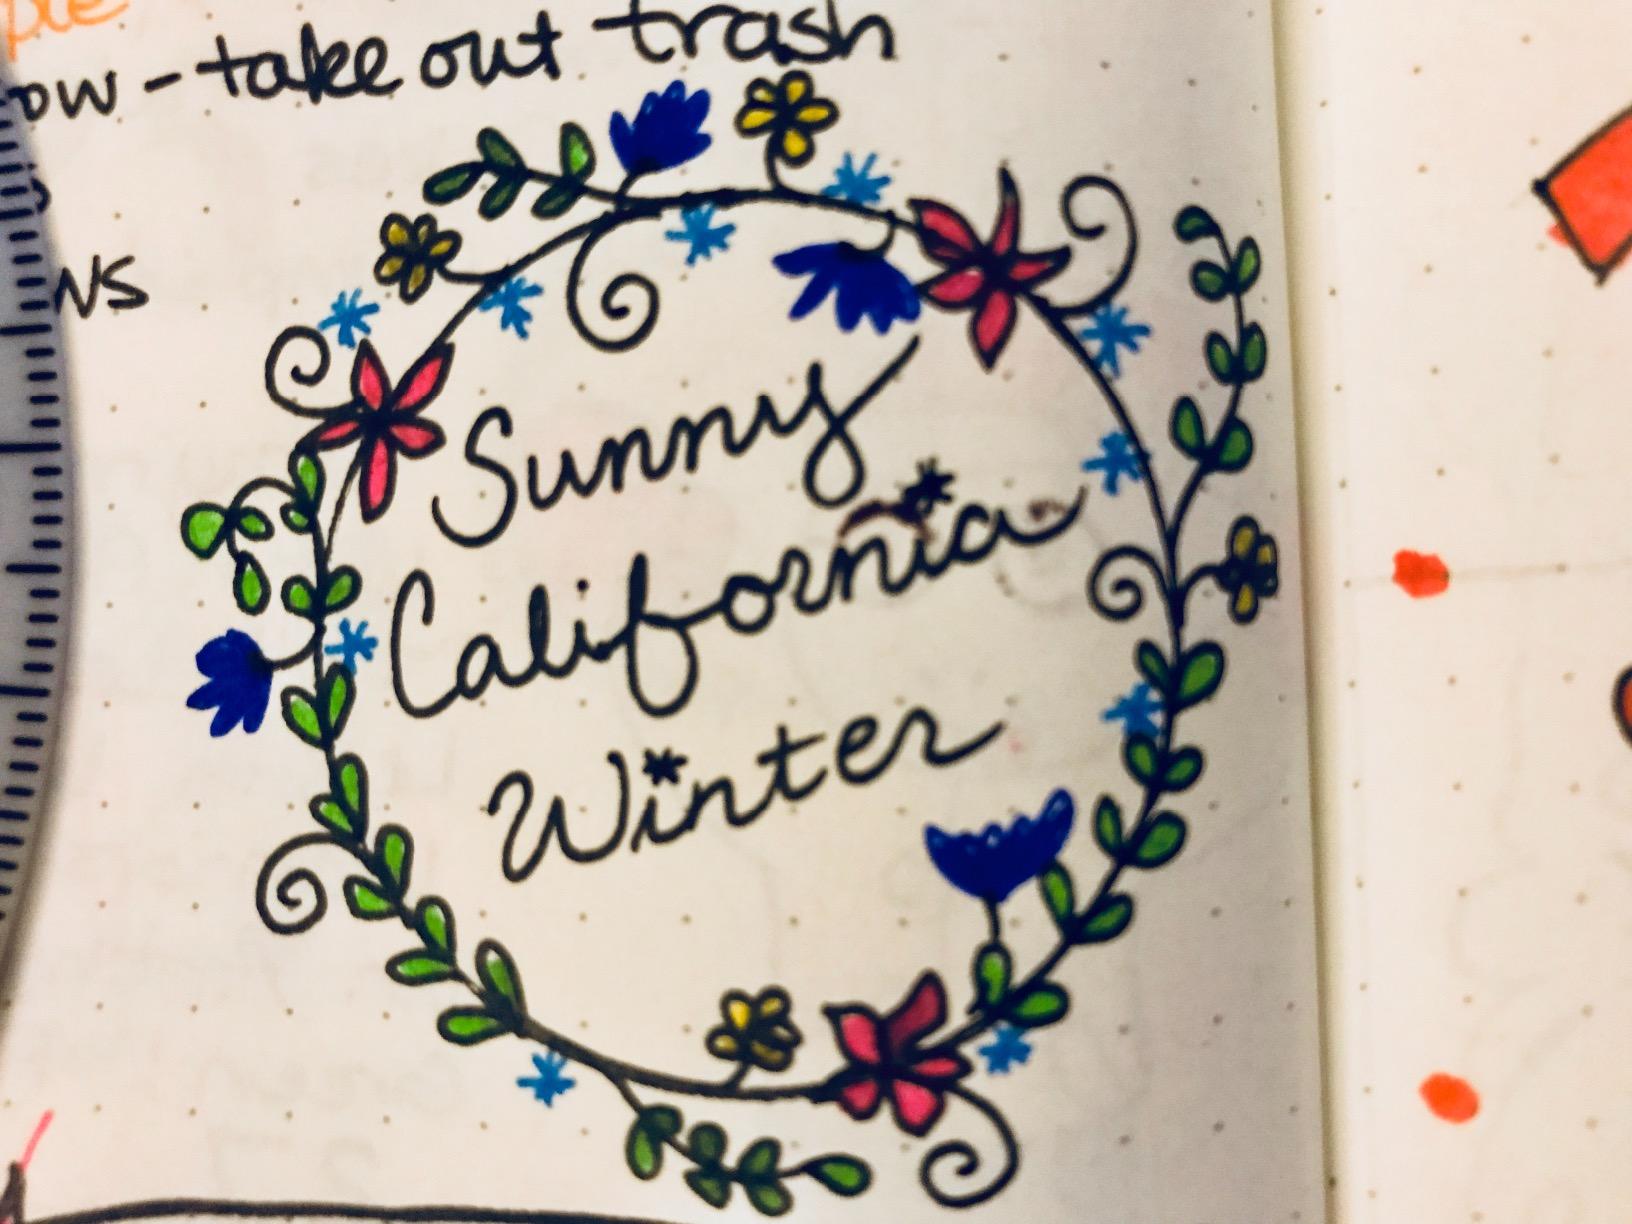 take out trash
Sunny
California
Winter